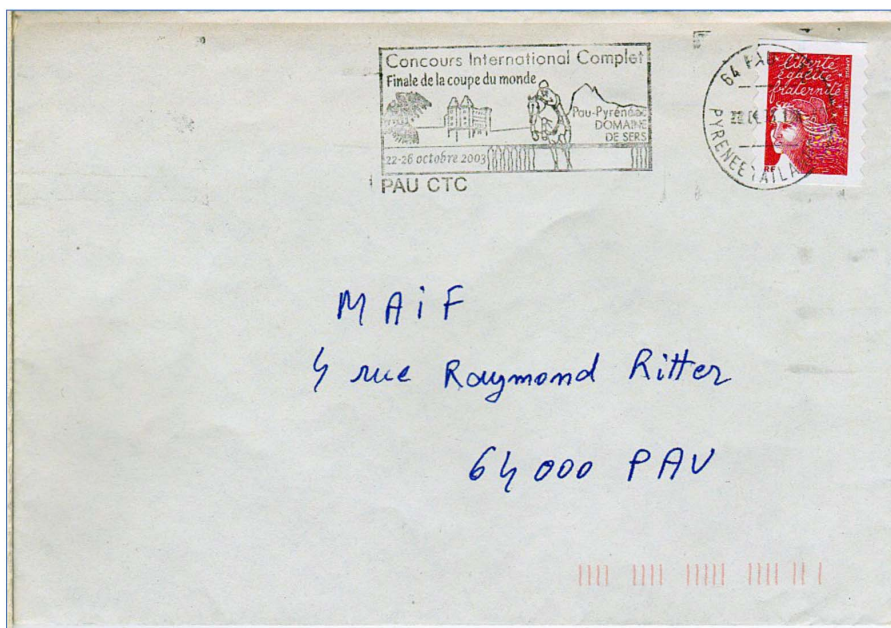 Concours International Complet
Finale de la coupe du monde
Pau-Pyrénées
DOMAINE
DE SERS
22-26 octobre 2003
PAU CTC
64 PAU
PYRENEES ATLA
liberté
égalité
fraternité
RF
MAiF
4 rue Raymond Ritter
64000 PAU